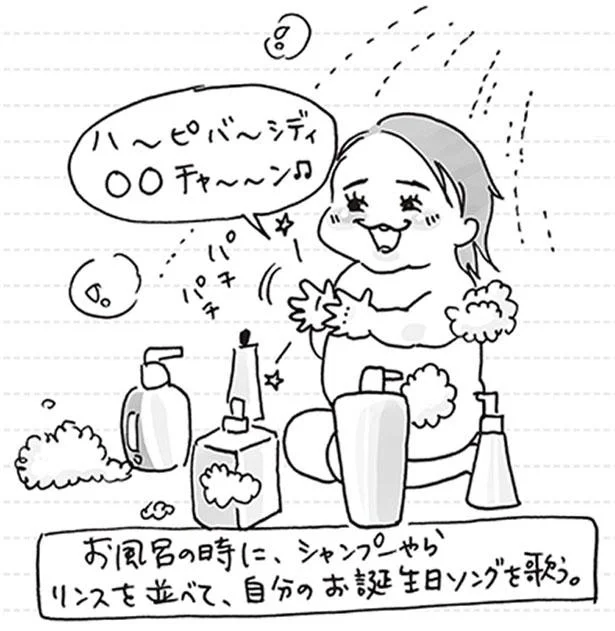 ハ〜ピバ〜シディ
〇〇チャ〜〜〜ン♫
パチ
パチ
お風呂の時に、シャンプーやら
リンスを並べて、自分のお誕生日ソングを歌う。